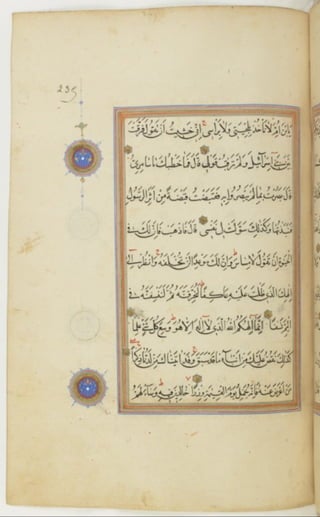 235
يَابْنَ أُمَّ لَا تَأْخُذْ بِلِحْيَتِي وَلَا بِرَأْسِي إِنِّي خَشِيتُ أَنْ تَقُولَ فَرَّقْتَ
بَيْنَ بَنِي إِسْرَائِيلَ وَلَمْ تَرْقُبْ قَوْلِي قَالَ فَمَا خَطْبُكَ يَا سَامِرِيُّ
قَالَ بَصُرْتُ بِمَا لَمْ يَبْصُرُوا بِهِ فَقَبَضْتُ قَبْضَةً مِنْ أَثَرِ الرَّسُولِ
فَنَبَذْتُهَا وَكَذَلِكَ سَوَّلَتْ لِي نَفْسِي قَالَ فَاذْهَبْ فَإِنَّ لَكَ فِي
الْحَيٰوةِ أَنْ تَقُولَ لَا مِسَاسَ وَإِنَّ لَكَ مَوْعِدًا لَنْ تُخْلَفَهُ وَانْظُرْ إِلَى
إِلَهِكَ الَّذِي ظَلْتَ عَلَيْهِ عَاكِفًا لَنُحَرِّقَنَّهُ ثُمَّ لَنَنْسِفَنَّهُ فِي
الْيَمِّ نَسْفًا إِنَّمَا إِلَهُكُمُ اللَّهُ الَّذِي لَا إِلَهَ إِلَّا هُوَ وَسِعَ كُلَّ شَيْءٍ عِلْمًا
كَذَلِكَ نَقُصُّ عَلَيْكَ مِنْ أَنْبَاءِ مَا قَدْ سَبَقَ وَقَدْ آتَيْنَاكَ مِنْ لَدُنَّا ذِكْرًا
مَنْ أَعْرَضَ عَنْهُ فَإِنَّهُ يَحْمِلُ يَوْمَ الْقِيٰمَةِ وِزْرًا خَالِدِينَ فِيهِ وَسَاءَ لَهُمْ